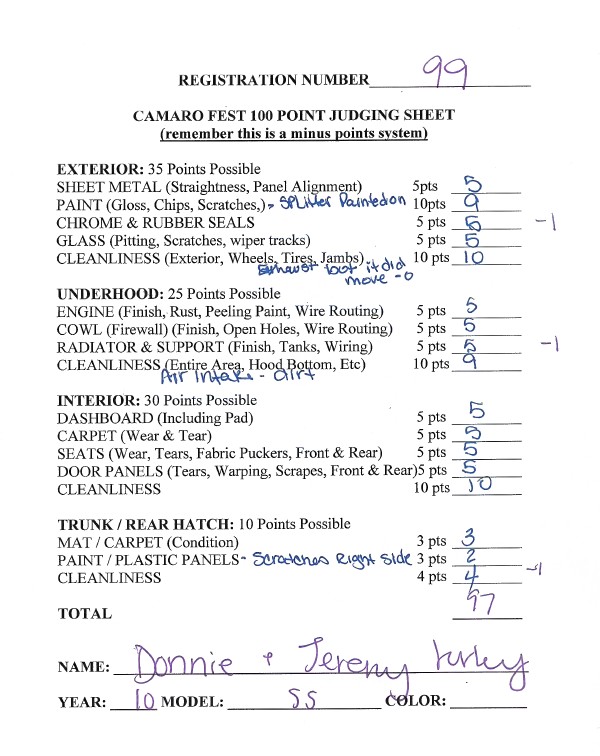 REGISTRATION NUMBER 99
CAMARO FEST 100 POINT JUDGING SHEET
(remember this is a minus points system)
EXTERIOR: 35 Points Possible
SHEET METAL (Straightness, Panel Alignment) 5pts 5
PAINT (Gloss, Chips, Scratches,) - Splitter Painted on 10pts 9
CHROME & RUBBER SEALS 5 pts 5 -1
GLASS (Pitting, Scratches, wiper tracks) 5 pts 5
CLEANLINESS (Exterior, Wheels, Tires, Jambs) 10 pts 10
Exhaust but it did
move -0
UNDERHOOD: 25 Points Possible
ENGINE (Finish, Rust, Peeling Paint, Wire Routing) 5 pts 5
COWL (Firewall) (Finish, Open Holes, Wire Routing) 5 pts 5
RADIATOR & SUPPORT (Finish, Tanks, Wiring) 5 pts 5 -1
CLEANLINESS (Entire Area, Hood Bottom, Etc) 10 pts 9
Air Intake - dirt
INTERIOR: 30 Points Possible
DASHBOARD (Including Pad) 5 pts 5
CARPET (Wear & Tear) 5 pts 5
SEATS (Wear, Tears, Fabric Puckers, Front & Rear) 5 pts 5
DOOR PANELS (Tears, Warping, Scrapes, Front & Rear)5 pts 5
CLEANLINESS 10 pts 10
TRUNK / REAR HATCH: 10 Points Possible
MAT / CARPET (Condition) 3 pts 3
PAINT / PLASTIC PANELS - Scratches Right Side 3 pts 2
CLEANLINESS 4 pts 4 -1
TOTAL 97
NAME: Donnie + Jeremy
YEAR: 10 MODEL: SS COLOR: